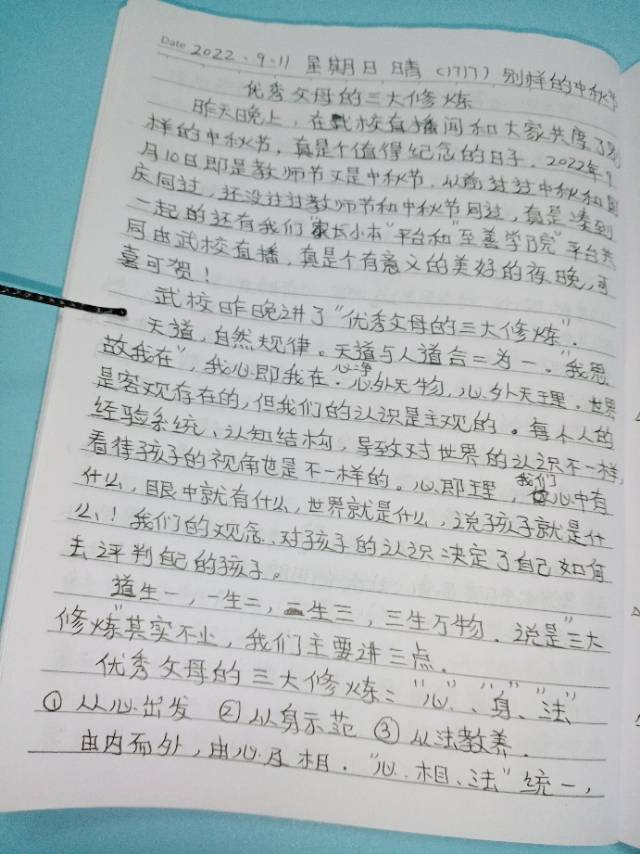 Date 2022.9.11 星期日 晴 (1717) 别样的中秋节
优秀父母的三大修炼
昨天晚上，在武校直播间和大家共度了别
样的中秋节，真是个值得纪念的日子。2022年9
月10日即是教师节又是中秋节，从前过过中秋和国
庆同过，还没过过教师节和中秋节同过，真是凑到
一起的还有我们"家长小本"平台和"至善学院"平台共
同由武校直播，真是个有意义的美好的夜晚，可
喜可贺！
武校昨晚讲了"优秀父母的三大修炼"．
天道，自然规律。天道与人道合二为一。"我思
故我在"，我心即我在．心净 心外无物，心外无理。世界
是客观存在的，但我们的认识是主观的。每个人的
经验系统、认知结构，导致对世界的认识不一样，
看待孩子的视角也是不一样的。心即理，我们心中有
什么，眼中就有什么，世界就是什么，说孩子就是什
么！我们的观念、对孩子的认识决定了自己如何
去评判自己的孩子。
道生一，一生二，二生三，三生万物．说是"三大
修炼"其实不止，我们主要讲三点．
优秀父母的三大修炼："心"、"身"、"法"
① 从心出发 ② 从身示范 ③ 从法教养．
由内而外，由心及相．"心．相、法"统一，